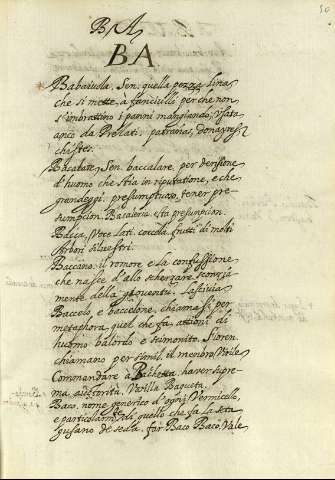 50
BA
BA
Babaiuola, Sen. quella pezza lina,
che si mette, à fanciulli perche non
s'imbrattino i panni mangiando, Usata
anco da Prelati,
Bacalare, Sen. baccalare, per derisione
d'huomo che stia in riputatione, e che
grandeggi. presumptuoso, tener pre-
sumpcion.
Bacca, Voce Lati. coccola frutti di molti
Arbori silvestri.
Baccano. il romore e la confussione
che nasce dallo scherzare
mente della gioventu. Lascivia
Baccelo, e baccelone, chiama si per
metaphora, quel che fa attioni di
huomo balordo e scimonito. Fioren.
chiamano per simil. il menbro Virile
Commandare à Bachetta. haver supre-
ma auttorità, Varilla Baqueta.
Baco, nome generico d'ogni Vermicello,
e particolarmte di quelli che fa la seta
gusano de seda. far Baco Baco, Vale